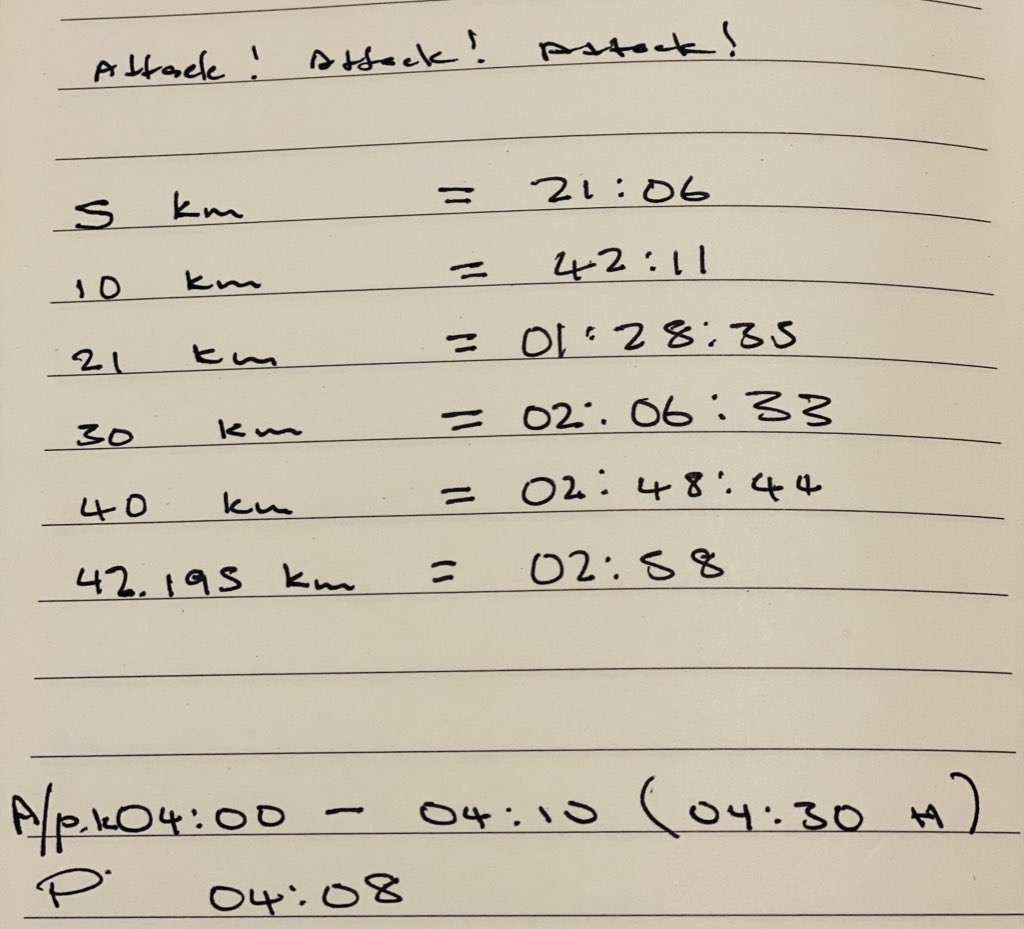 Attack! Attack! Attack!
5 km = 21:06
10 km = 42:11
21 km = 01:28:35
30 km = 02:06:33
40 km = 02:48:44
42.195 km = 02:58
A/p.k 04:00 - 04:10 (04:30 H)
P 04:08